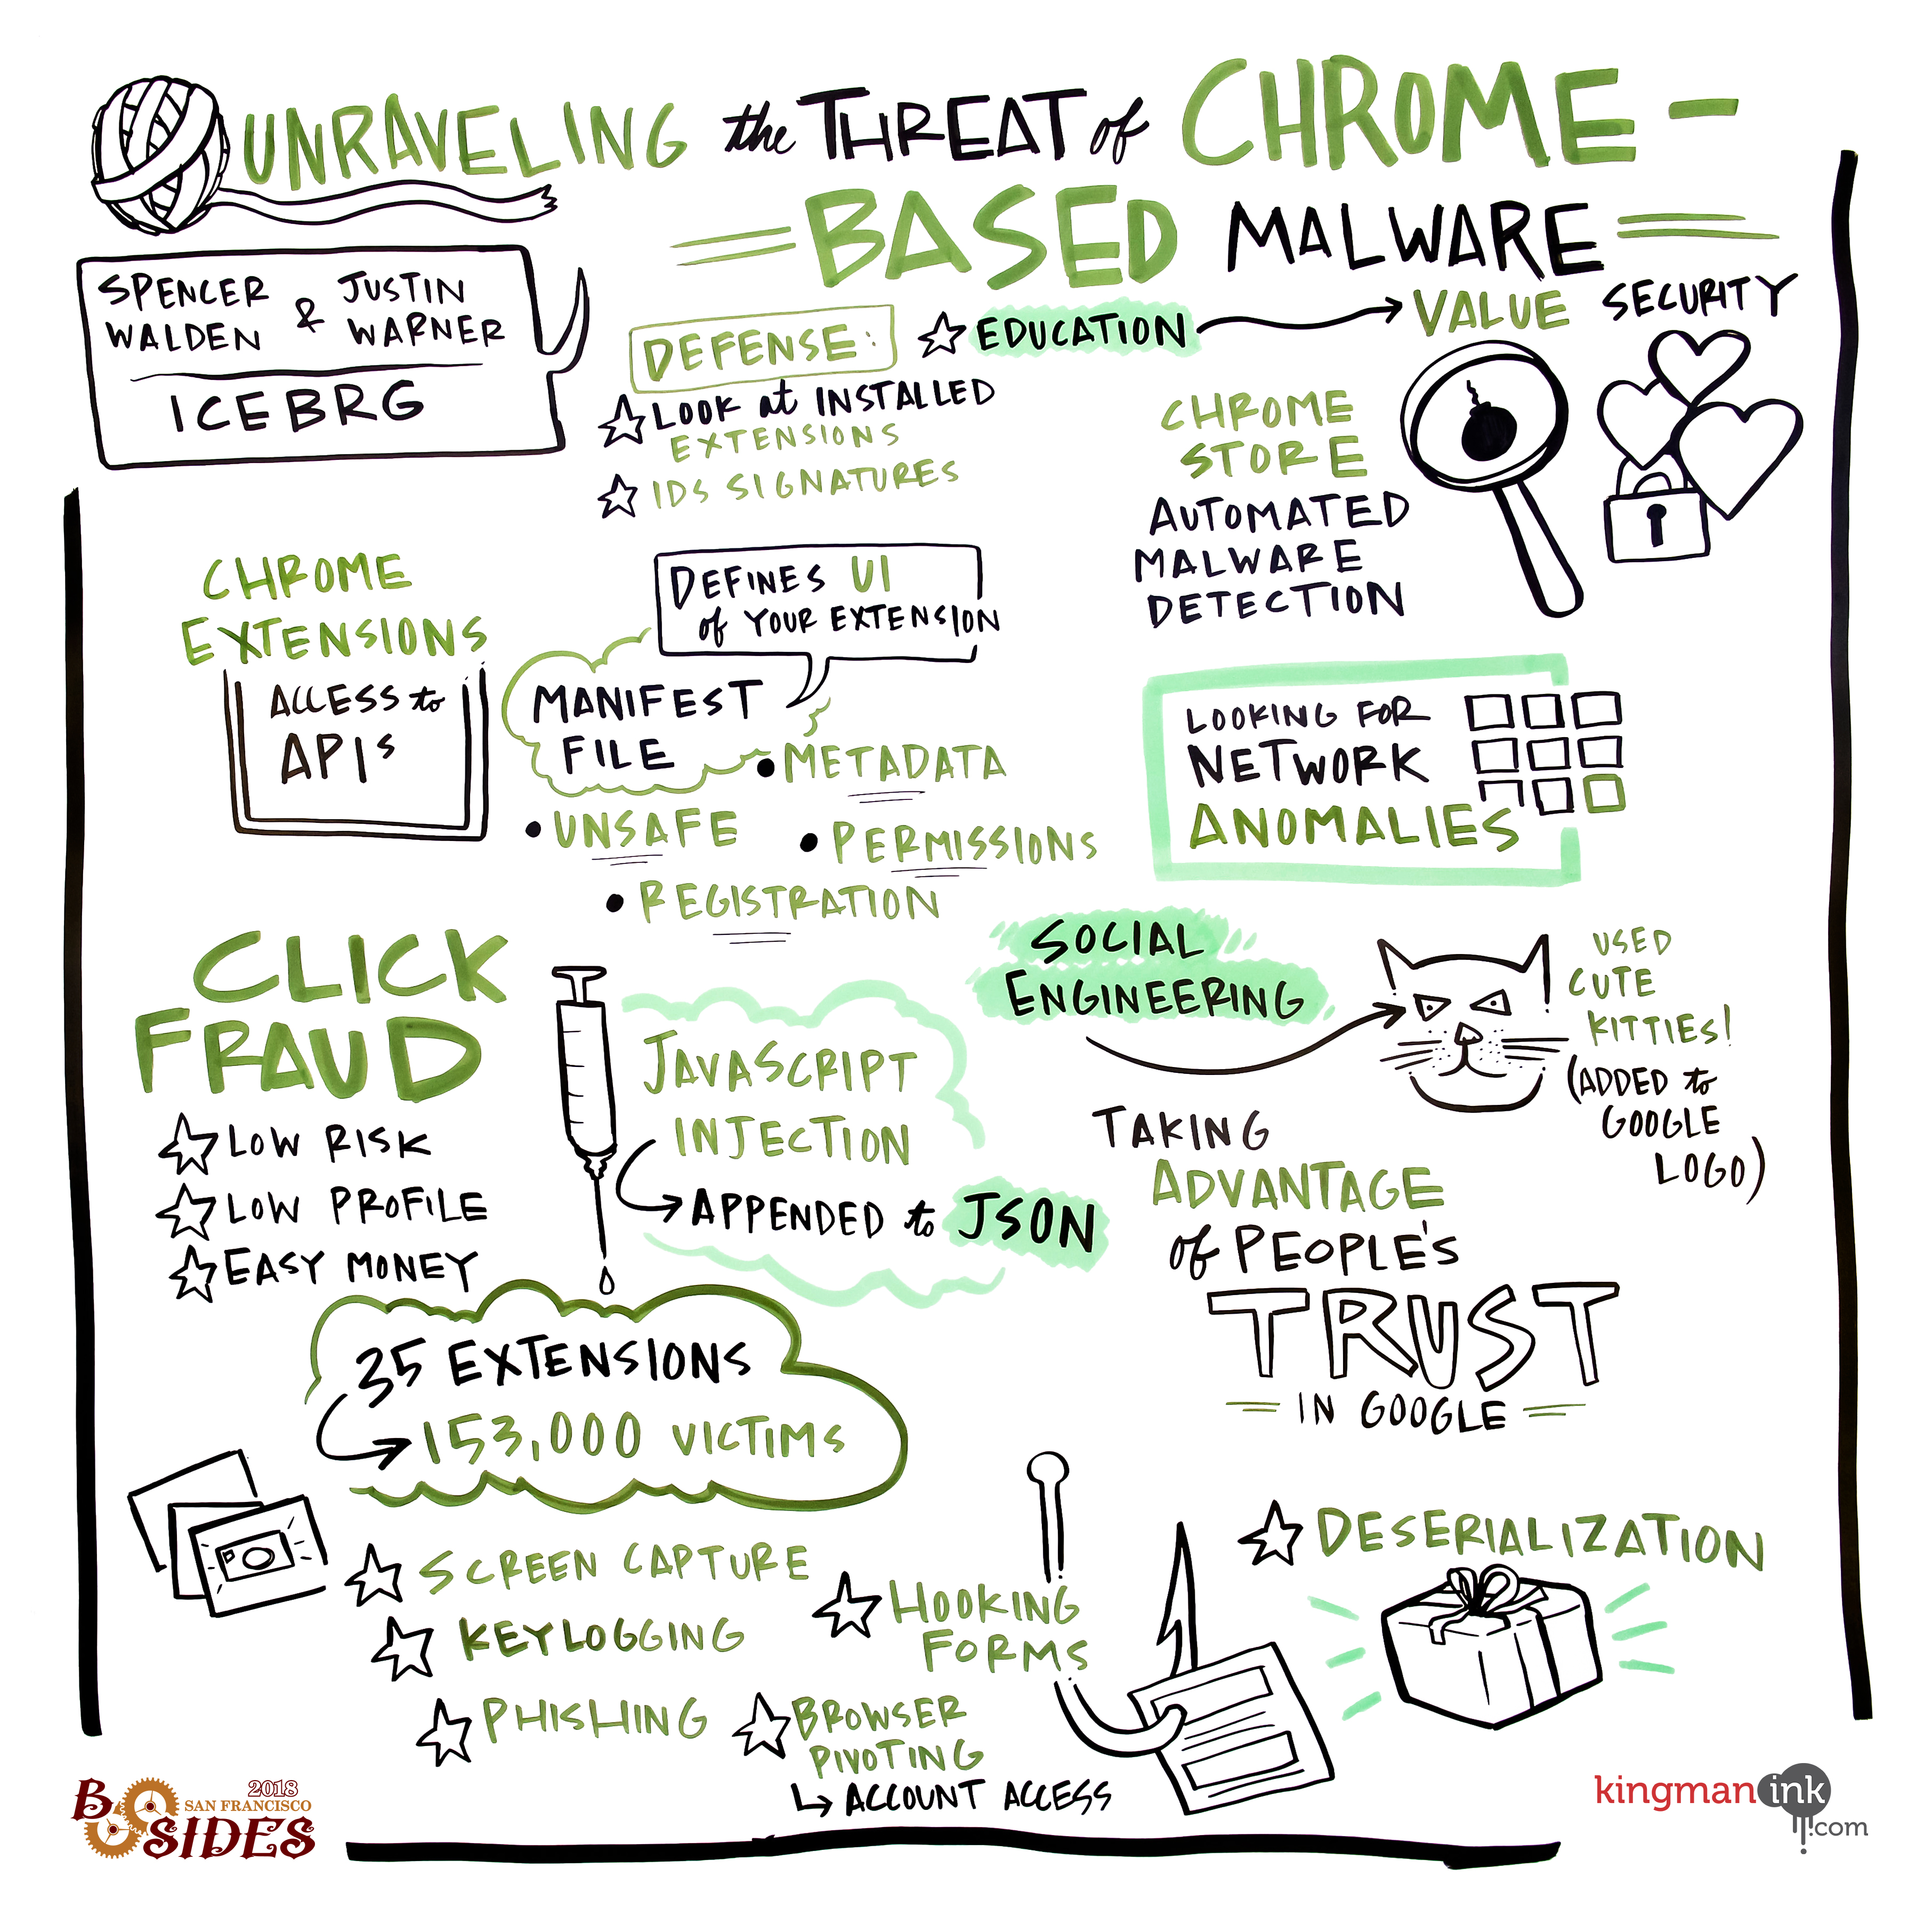 UNRAVELING the THREAT of CHROME-
BASED MALWARE
SPENCER WALDEN & JUSTIN WARNER
ICEBRG
DEFENSE:
LOOK at INSTALLED
EXTENSIONS
IDS SIGNATURES
EDUCATION
VALUE SECURITY
CHROME
STORE
AUTOMATED
MALWARE
DETECTION
CHROME
EXTENSIONS
ACCESS to
APIs
DEFINES UI
of YOUR EXTENSION
MANIFEST
FILE
METADATA
UNSAFE
PERMISSIONS
REGISTRATION
LOOKING FOR
NETWORK
ANOMALIES
CLICK
FRAUD
LOW RISK
LOW PROFILE
EASY MONEY
JAVASCRIPT
INJECTION
APPENDED to JSON
SOCIAL
ENGINEERING
USED
CUTE
KITTIES!
(ADDED to
GOOGLE
LOGO)
TAKING
ADVANTAGE
of PEOPLE'S
TRUST
IN GOOGLE
35 EXTENSIONS
153,000 VICTIMS
SCREEN CAPTURE
KEYLOGGING
PHISHING
HOOKING
FORMS
BROWSER
PIVOTING
ACCOUNT ACCESS
DESERIALIZATION
2018
SAN FRANCISCO
B SIDES
kingman ink
.com